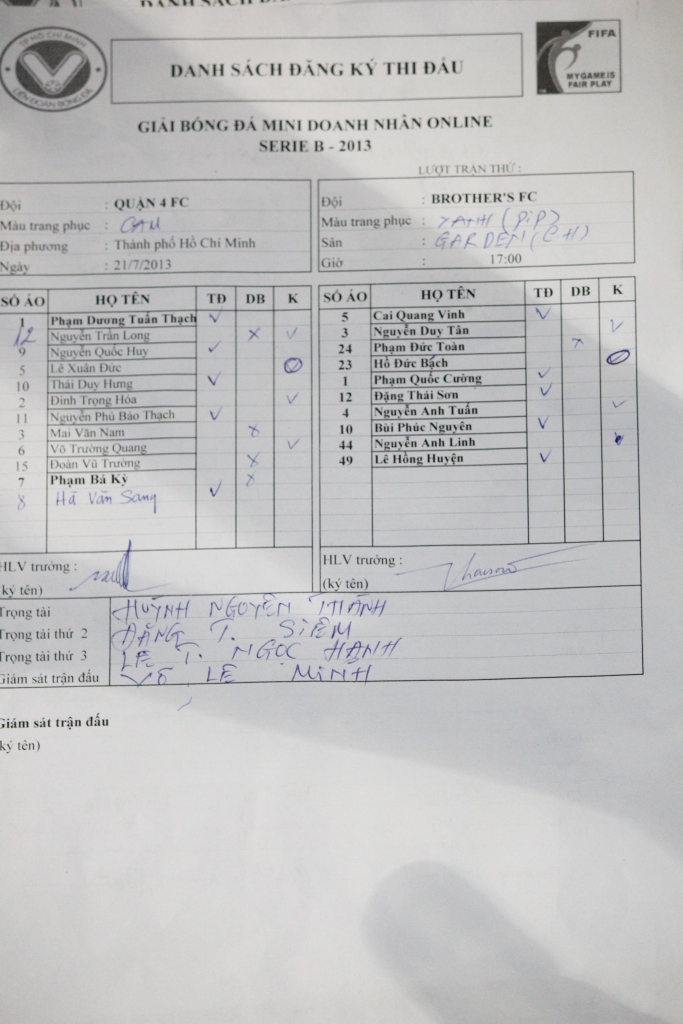 TP HỒ CHÍ MINH
LIÊN ĐOÀN BÓNG ĐÁ
DANH SÁCH ĐĂNG KÝ THI ĐẤU
FIFA
MY GAME IS
FAIR PLAY
GIẢI BÓNG ĐÁ MINI DOANH NHÂN ONLINE
SERIE B - 2013
LƯỢT TRẬN THỨ :
Đội : QUẬN 4 FC
Màu trang phục : CAM
Địa phương : Thành phố Hồ Chí Minh
Ngày : 21/7/2013
Đội : BROTHER'S FC
Màu trang phục : XANH (PIP)
Sân : GARDEN (C.H)
Giờ : 17:00
SỐ ÁO HỌ TÊN TĐ DB K
1 Phạm Dương Tuấn Thạch ✓
12 Nguyễn Trần Long x ✓
9 Nguyễn Quốc Huy ✓
5 Lê Xuân Đức
10 Thái Duy Hưng ✓
2 Đinh Trọng Hóa ✓
11 Nguyễn Phú Bảo Thạch ✓
3 Mai Văn Nam x
6 Võ Trường Quang ✓
15 Đoàn Vũ Trường x
7 Phạm Bá Kỳ x
8 Hà Văn Sang ✓
SỐ ÁO HỌ TÊN TĐ DB K
5 Cai Quang Vinh ✓
3 Nguyễn Duy Tân ✓
24 Phạm Đức Toàn x
23 Hồ Đức Bách
1 Phạm Quốc Cường ✓
12 Đặng Thái Sơn ✓
4 Nguyễn Anh Tuấn ✓
10 Bùi Phúc Nguyên ✓
44 Nguyễn Anh Linh
49 Lê Hồng Huyện ✓
HLV trưởng :
(ký tên)
HLV trưởng :
(ký tên)
Trọng tài HUỲNH NGUYÊN THÀNH
Trọng tài thứ 2 ĐẶNG T. SIÊM
Trọng tài thứ 3 LÊ T. NGỌC HẠNH
Giám sát trận đấu VÕ LÊ MINH
Giám sát trận đấu
ký tên)